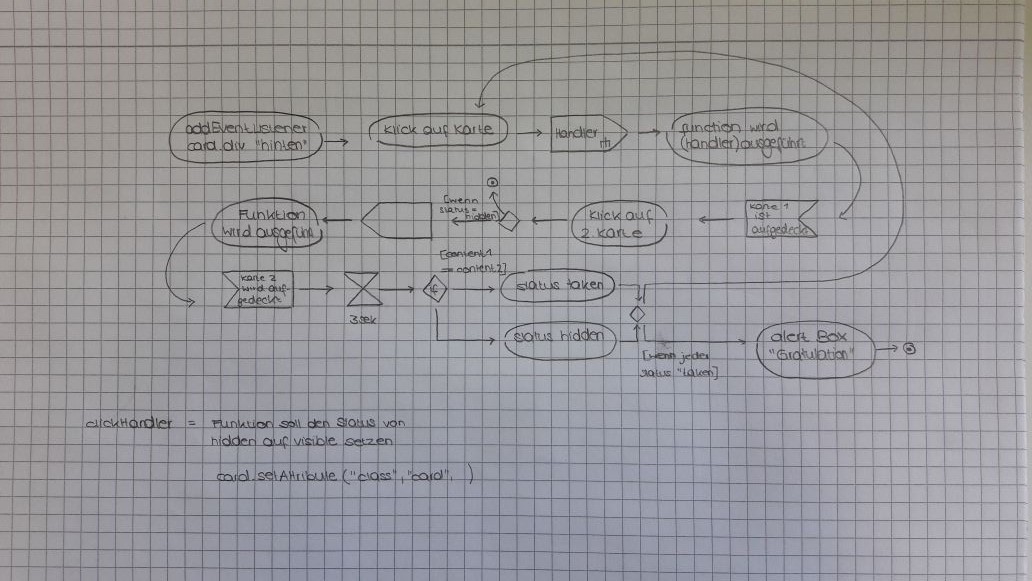 addEventListener
card.div "hinten"
Klick auf Karte
Handler
function wird
(Handler) ausgeführt
Funktion
wird ausgeführt
[wenn
status =
hidden]
Klick auf
2 Karte
Karte 1
ist
aufgedeckt
Karte 2
wird auf-
gedeckt
3 sek
[content1
== content2]
if
status taken
status hidden
[wenn jeder
status "taken]
alert Box
"Gratulation"
clickHandler = Funktion soll den Status von
hidden auf visible setzen
card.setAttribute ("class", "card", )